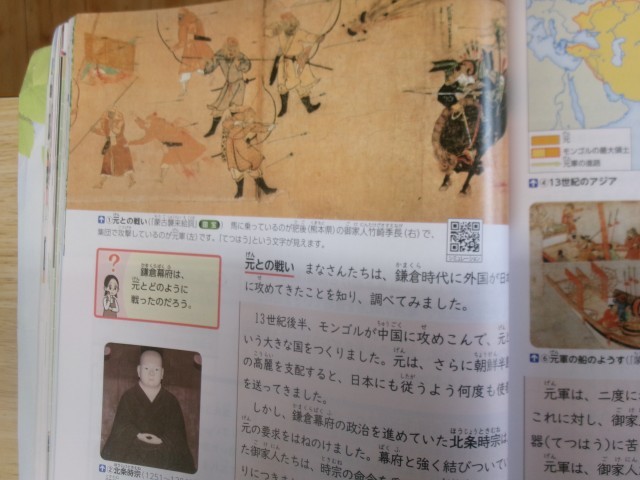 元
モンゴルの最大領土
元軍の進路
④13世紀のアジア
①元との戦い
馬に乗っているのが肥後(熊本県)の御家人竹崎季長(右)で、
集団で攻撃しているのが元軍(左)です。「てつはう」という文字が見えます。
?
鎌倉幕府は、
元とどのように
戦ったのだろう。
元との戦い まなさんたちは、鎌倉時代に外国が日本
に攻めてきたことを知り、調べてみました。
13世紀後半、モンゴルが中国に攻めこんで、元と
いう大きな国をつくりました。元は、さらに朝鮮半
の高麗を支配すると、日本にも従うよう何度も使
を送ってきました。
しかし、鎌倉幕府の政治を進めていた北条時宗は
元の要求をはねのけました。幕府と強く結びついて
た御家人たちは、時宗の命令
りにつき
②北条時宗(1251
⑥元軍の船のようす
元軍は、二度に
これに対し、御家
器(てつはう)に苦
元軍は、御家人